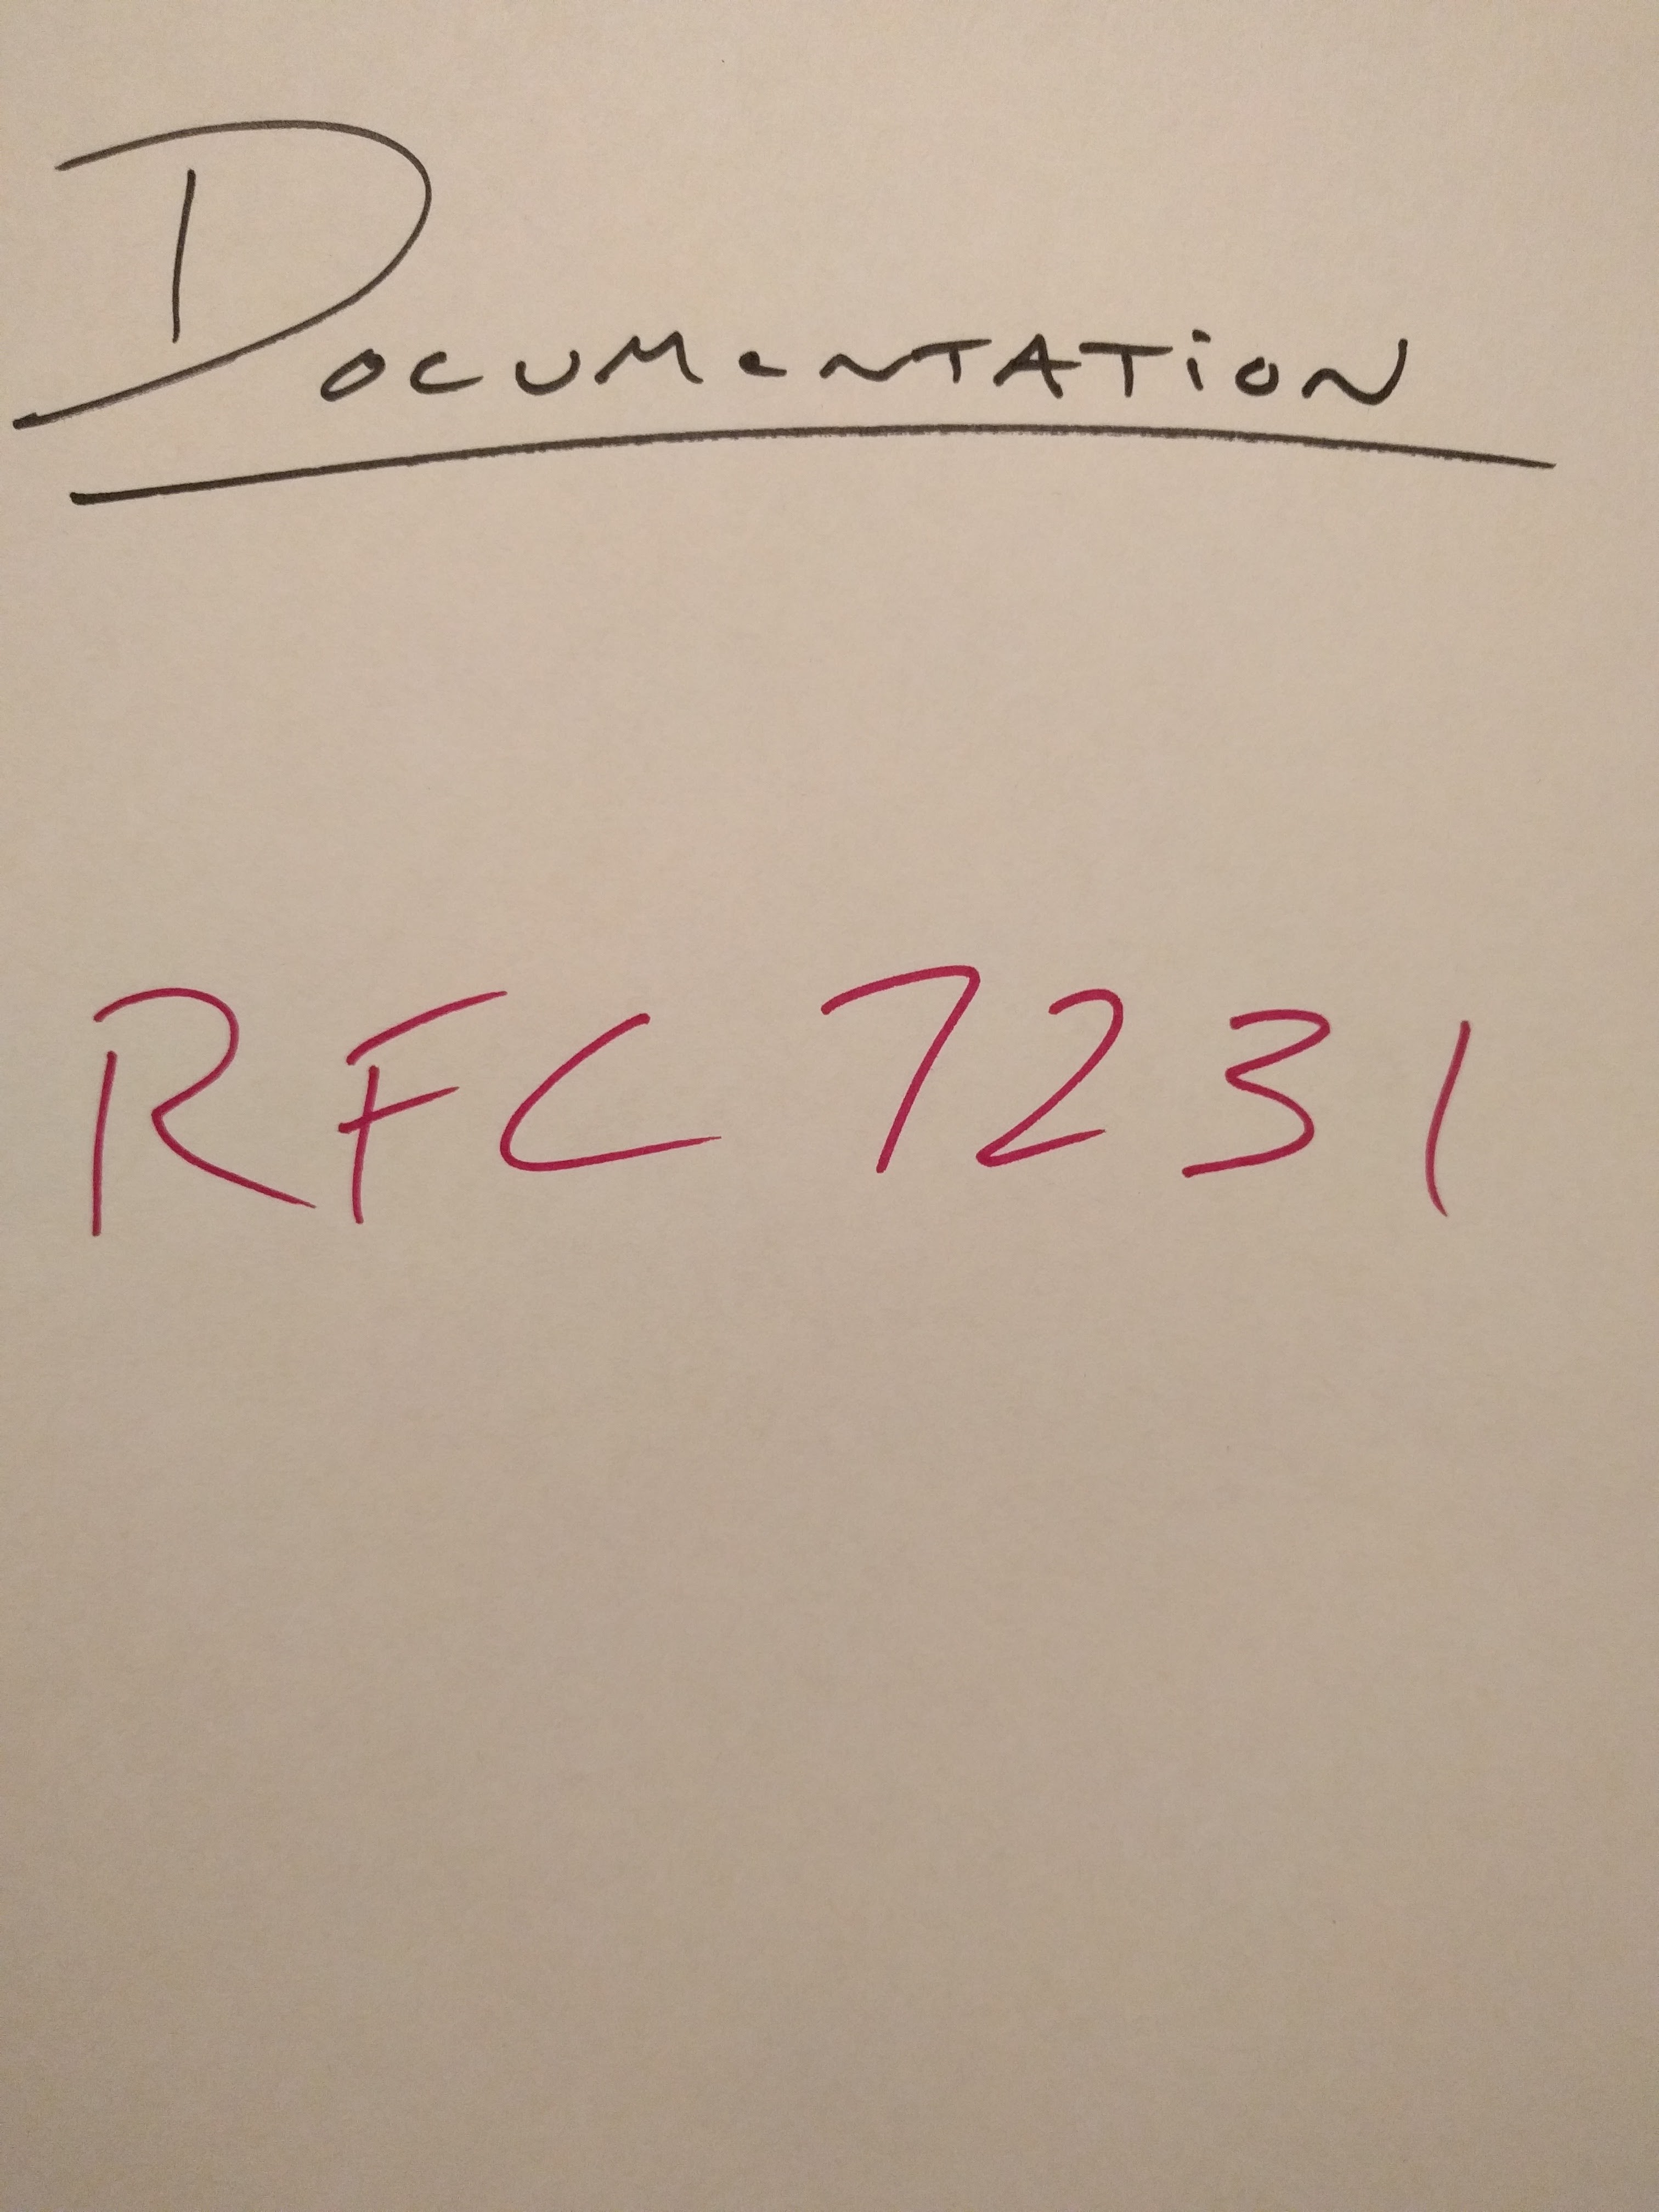 Documentation
RFC 7231